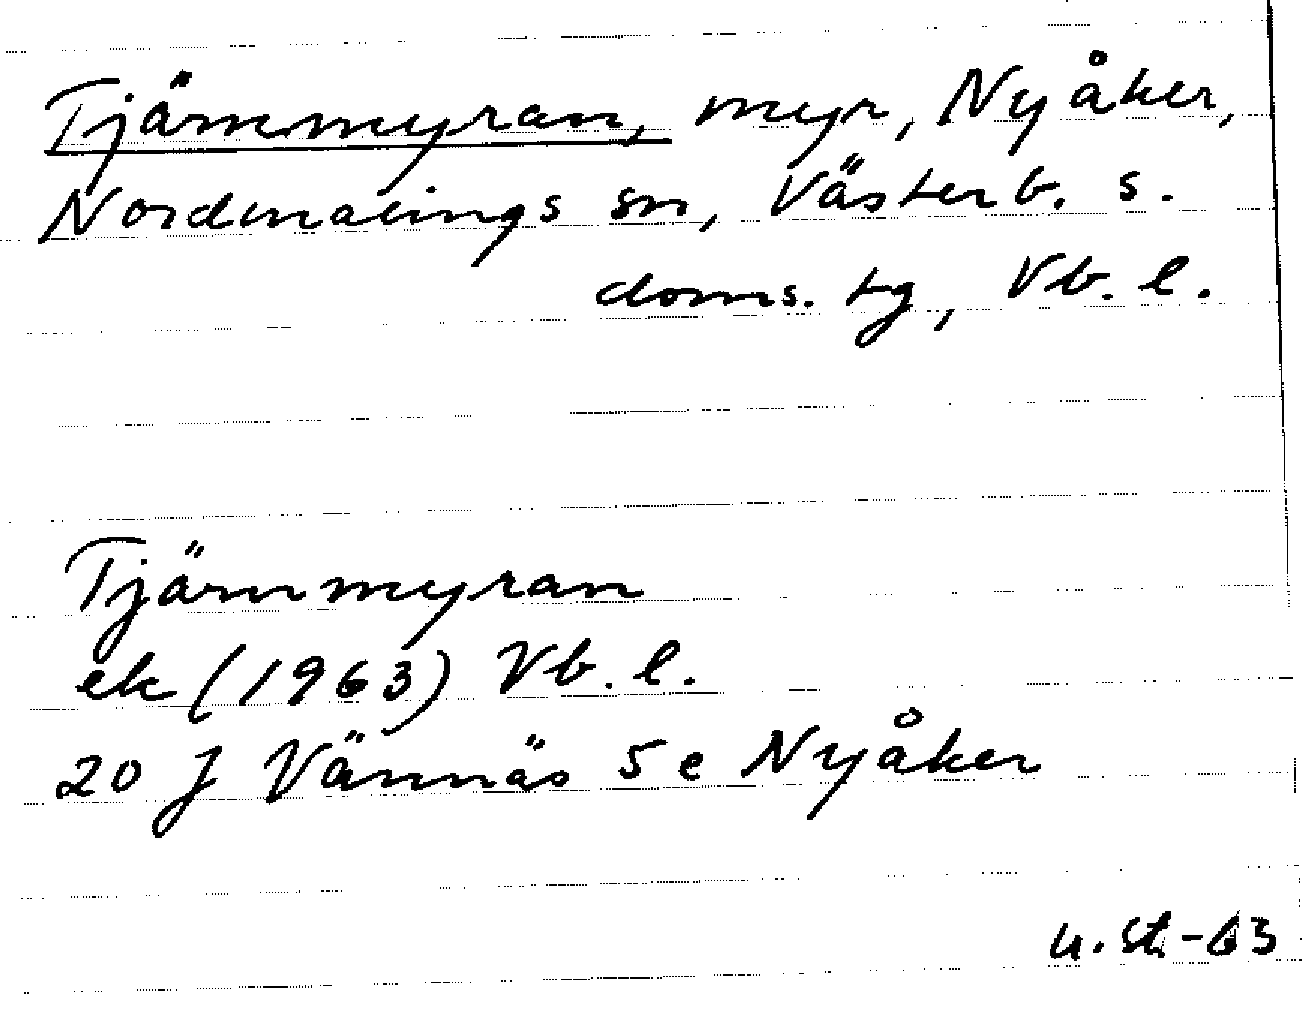 Tjärnmyran, myr, Nyåker,
Nordmalings sn, Västerb. s.
doms. tg, Vb. l.
Tjärnmyran
ek (1963) Vb. l.
20 J Vännäs 5 e Nyåker
u. st. -63